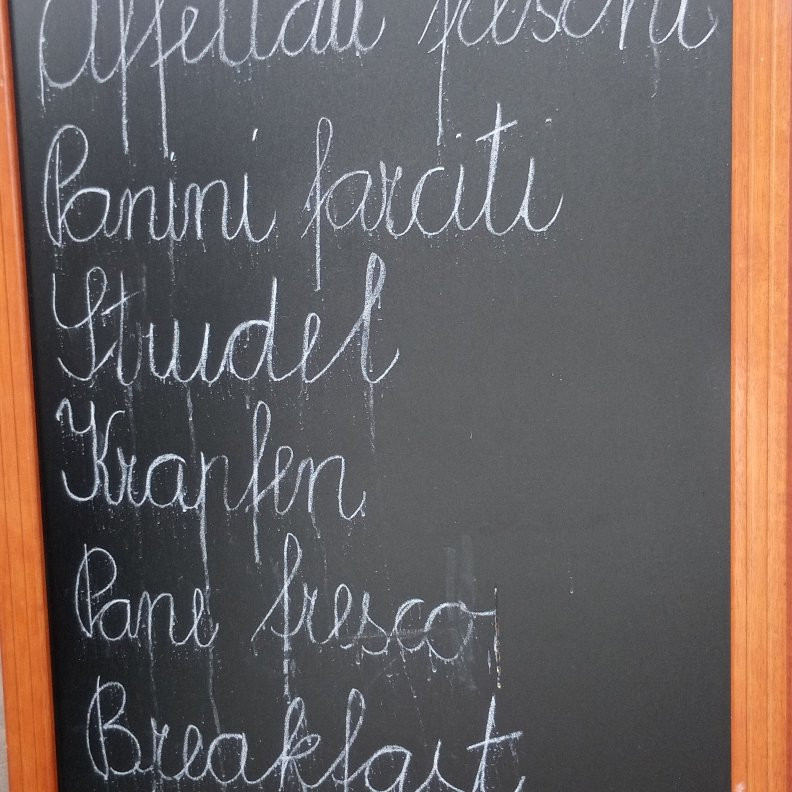 Affettati freschi
Panini farciti
Strudel
Krapfen
Pane fresco
Breakfast